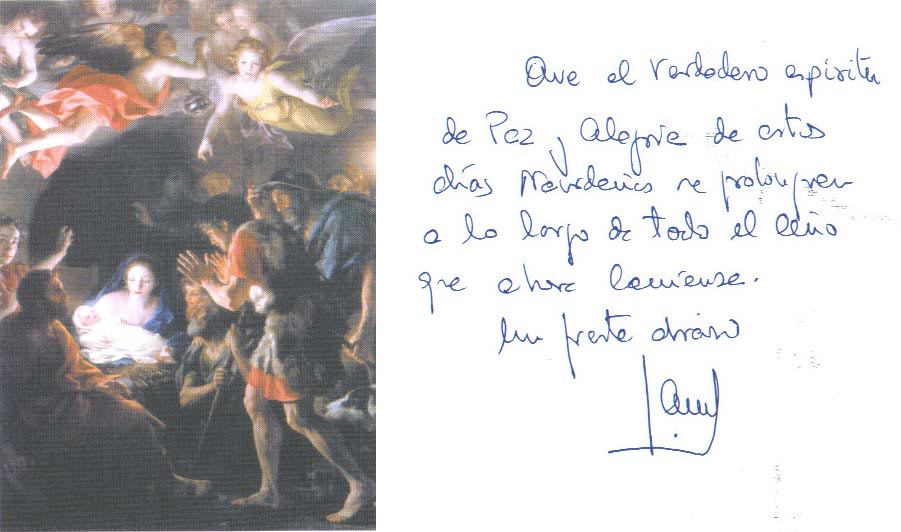 Que el verdadero espíritu
de Paz y Alegría de estos
días Navideños se prolonguen
a lo largo de todo el año
que ahora comienza.
Un fuerte abrazo